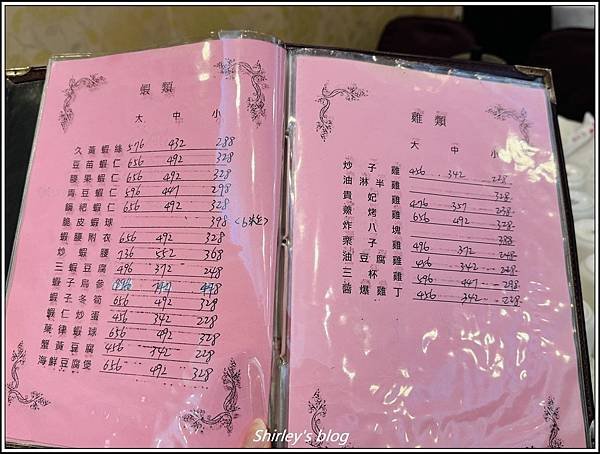 蝦類
大 中 小
蝦絲 576 432 288
豆苗蝦仁 656 492 328
腰果蝦仁 656 492 328
青豆蝦仁 596 447 298
鍋粑蝦仁 656 492 328
脆皮蝦球 398
蝦腰附衣 656 492 328
炒蝦腰 736 552 368
三蝦豆腐 496 372 248
蝦子烏參
蝦子冬筍 656 492 328
蝦仁炒蛋 456 342 228
菠律蝦球 656 492 328
蟹黃豆腐 456 342 228
海鮮豆腐煲 656 492 328
雞類
大 中 小
炒子雞 456 342 228
油淋半雞 328
貴妃雞 476 357 238
烤雞 656 492 328
炸八塊 388
栗子雞 496 372 248
油豆腐雞 456 342 228
三杯雞 596 447 298
醬爆雞丁 456 342 228
Shirley's blog